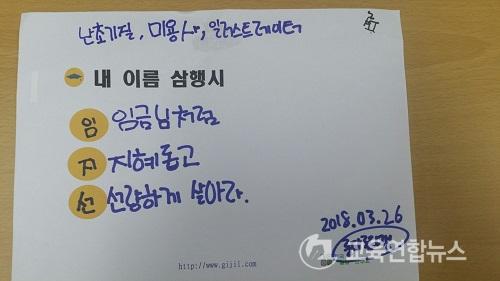 난초기질, 미용사, 일러스트레이터
내 이름 삼행시
임 임금님처럼
지 지혜롭고
선 선량하게 살아라.
2018.03.26
http://www.gijil.com
교육연합뉴스